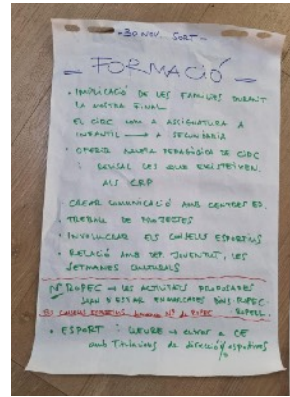 -30 NOV. SORT-
- FORMACIÓ -
• IMPLICACIÓ DE LES FAMÍLIES DURANT
LA MOSTRA FINAL
EL CIRC COM A ASSIGNATURA A
INFANTIL → A SECUNDÀRIA
• OFERIR MALETA PEDAGÒGICA DE CIRC
I REVISAR LES QUE EXISTEIXEN
ALS CRP
• CREAR COMUNICACIÓ AMB CENTRES ED.
TREBALL DE PROJECTES
• INVOLUCRAR ELS CONSELLS ESPORTIUS
• RELACIÓ AMB DEP. JOVENTUT, LES
SETMANES CULTURALS
ROPEC → LES ACTIVITATS PROPOSADES
HAN D'ESTAR EMMARCADES DINS ROPEC.
CONSELLS ESPORTIUS Nº DE ROPEC
• ESPORT I LLEURE → a CE
amb Titulacions de direcció esportives